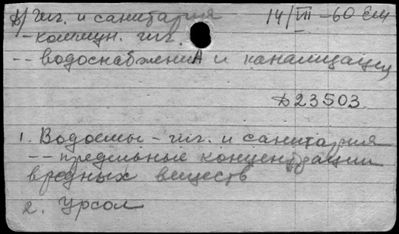 гиг. и санитария 14/III-60 Ем
- коммун. гиг.
-- водоснабжения и канализации
Д 23503.
1. Водоемы - гиг. и санитария
-- предельные концентрации
вредных веществ
2. Урсол